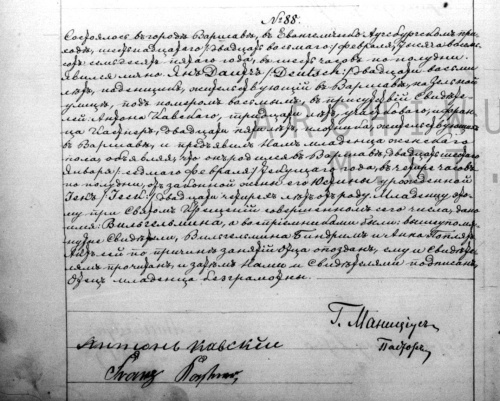 № 88.
Состоялось въ городѣ Варшавѣ, въ Евангелическо Аугсбургскомъ при-
ходѣ, шестнадцатаго /двадцать восьмаго/ февраля, тысяча восемь-
сотъ семьдесятъ пятаго года, въ шесть часовъ по полудни.
Явился лично, Янъ Дайчъ /Deutsch/ двадцати восьми
лѣтъ, поденщикъ, жительствующій въ Варшавѣ, на Вольной
улицѣ, подъ номеромъ восьмымъ, въ присутствіи свидѣте-
лей Антона Кавскаго, тридцати лѣтъ, участковаго, и Фран-
ца Кастнеръ, двадцати пяти лѣтъ, плотника, жительствующихъ
въ Варшавѣ, и предъявилъ Намъ младенца женскаго
пола, объявляя, что онъ родился въ Варшавѣ, двадцать шестаго
Января /седьмаго февраля/ текущаго года, въ четыре часа
по полудни, отъ законной жены его Юстины урожденной
Гекъ /Geck/ двадцати четырехъ лѣтъ отъ роду. Младенцу ово-
му при Святомъ Крещеніи совершенномъ сего числа, дано
имя Вильгельмина, а воспріемниками были вышеупомя-
нутые свидѣтели, Вильгельмина и Анна
Актъ сей по причинѣ занятій Отца опозданъ, ему и свидѣте-
лямъ прочитанъ, и затѣмъ Нами и свидѣтелями подписанъ,
Отецъ младенца безграмотенъ.
Г. Маниціусъ
Пасторъ
Антонъ Кавскій
Franz Kastner
ARCHIWU